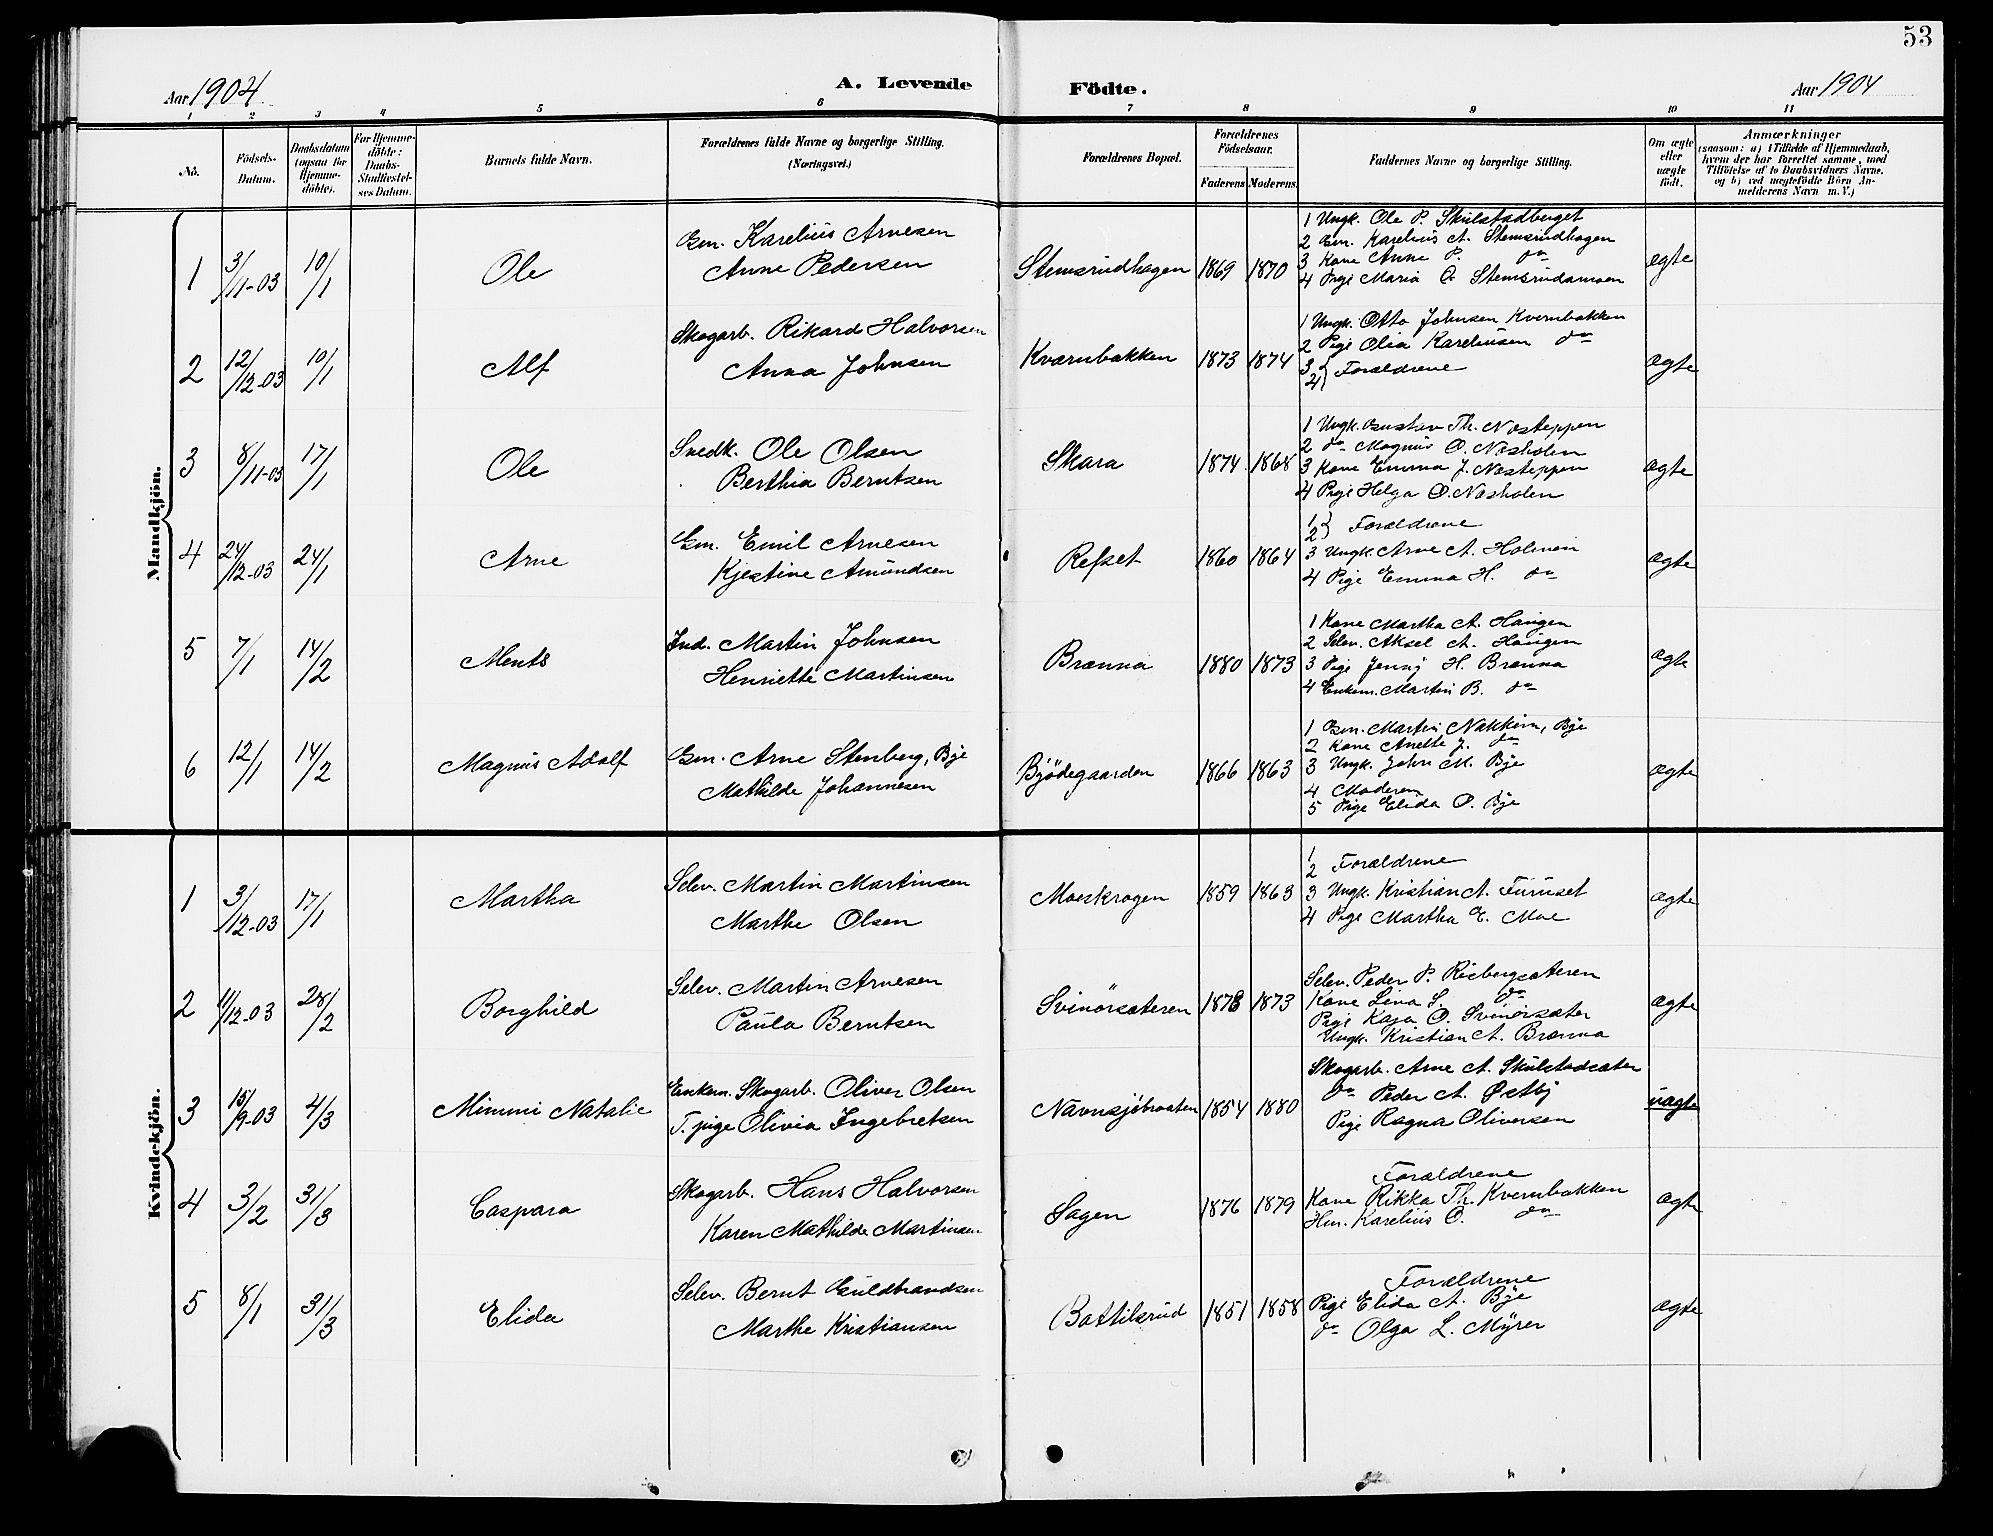 53
Aar 1904
A. Levende Födte.
Aar 1904
1 2 3 4 5 6 7 8 9 10 11
No.
Födsels-Datum.
Daabsdatum (ogsaa for Hjemmedöbte).
For Hjemmedöbte: Daabs-Stadfæstelses Datum.
Barnets fulde Navn.
Forældrenes fulde Navne og borgerlige Stilling. (Næringsvei.)
Forældrenes Bopæl.
Forældrenes Födselsaar.
Faderens Moderens
Faddernes Navne og borgerlige Stilling.
Om ægte eller uægte födt.
Anmærkninger
(saasom: a) i Tilfælde af Hjemmedaab, hvem der har forrettet samme, med Tilföielse af to Daabsvidners Navne, og b) ved uægtefödte Börn Anmelderens Navn m. V.)
Mandkjön.
1 3/11-03 10/1 Ole
Gm. Karelius Arnesen
Anne Pedersen
Stemsrudhagen 1869 1870
1 Ungk. Ole P. Skulstadberget
2 Gm. Karelius A. Stemsrudhagen
3 Kone Anne P. do
4 Pige Maria O. Stemsrudsmoen
ægte
2 12/12-03 10/1 Alf
Skogarb. Rikard Halvorsen
Anna Johnsen
Kværnbakken 1873 1874
1 Ungk. Otto Johnsen Kvernbakken
2 Pige Olia Kareliusen do
3 } Forældrene
4 }
ægte
3 8/11-03 17/1 Ole
Snedk. Ole Olsen
Berthia Berntsen
Skara 1874 1868
1 Ungk. Gustav Th. Næsteppen
2 do Magnus O. Næsholen
3 Kone Emma J. Næsteppen
4 Pige Helga O. Næsholen
ægte
4 24/12-03 24/1 Arne
Gm. Emil Arnesen
Kjestine Amundsen
Refset 1860 1864
1 } Forældrene
2 }
3 Ungk. Arne A. Holmen
4 Pige Emma H. do
ægte
5 7/1 14/2 Ments
Ind. Martin Johnsen
Henriette Martinsen
Brænna 1880 1873
1 Kone Martha A. Haugen
2 Selv. Aksel A. Haugen
3 Pige Jenny H. Brænna
4 Enkem. Martin B. do
ægte
6 12/1 14/2 Magnus Adolf
Gm. Arne Stenberg, Bye
Mathilde Johannesen
Byödegaarden 1866 1863
1 Gm. Martin Nakkim, Bye
2 Kone Anette J. do
3 Ungk. John M. Bye
4 Moderen
5 Pige Elida O. Bye
ægte
Kvindekjön.
1 3/12-03 17/1 Martha
Selv. Martin Martinsen
Marthe Olsen
Moeskrogen 1859 1863
1
2 Forældrene
3 Ungk. Kristian A. Furuset
4 Pige Martha E. Moe
ægte
2 11/12-03 28/2 Borghild
Selev. Martin Arnesen
Paula Berntsen
Svinörsæteren 1878 1873
Selev. Peder P. Risbergsæteren
Kone Lina S. do
Pige Kaja O. Svinörsæter
Ungk. Kristian A. Brænna
ægte
3 15/9-03 4/3 Mimmi Natalie
Enkem. Skogarb. Oliver Olsen
T. pige Olivia Ingebretsen
Navnsjöbraaten 1854 1880
Skogarb. Arne A. Skulstadsæter
do Peder A. Östby
Pige Ragna Oliversen
uægte
4 3/2 31/3 Caspara
Skogarb. Hans Halvorsen
Karen Mathilde Martinsen
Sagen 1876 1879
Forældrene
Kone Rikka Th. Kvernbakken
Hm. Karelius O. do
ægte
5 8/1 31/3 Elida
Selev. Bernt Guldbrandsen
Marthe Kristiansen
Battilsrud 1851 1858
Forældrene
Pige Elida A. Bye
do Olga L. Myrer
ægte